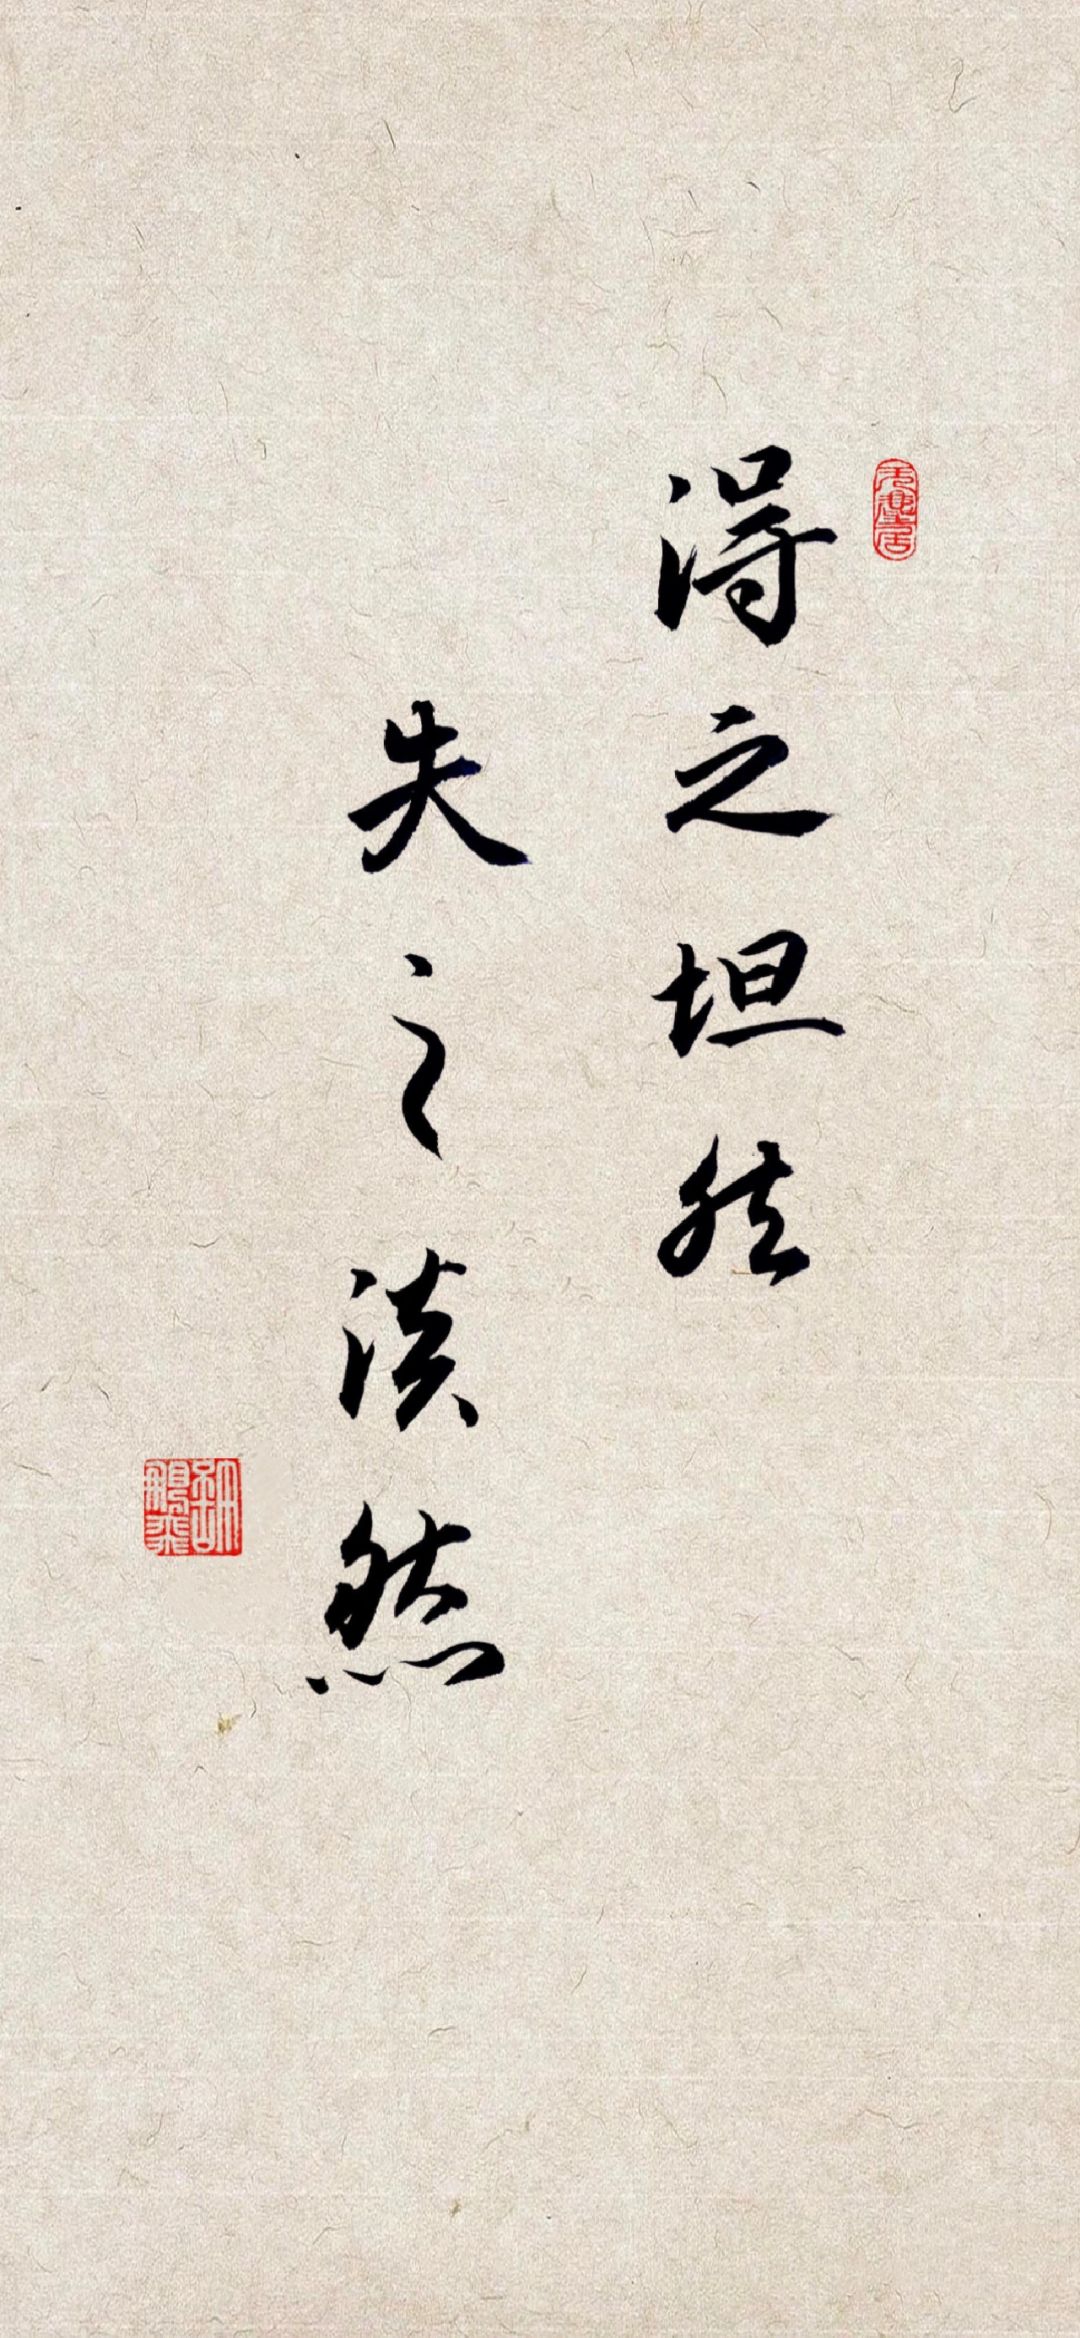 得之坦然
失之淡然